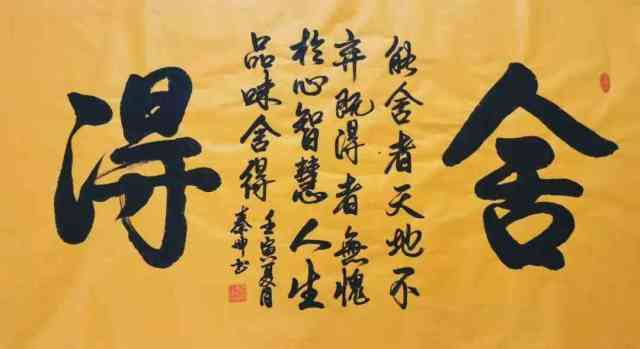 舍
能舍者天地不
弃既得者無愧
於心智慧人生
品味舍得
壬寅夏月
得